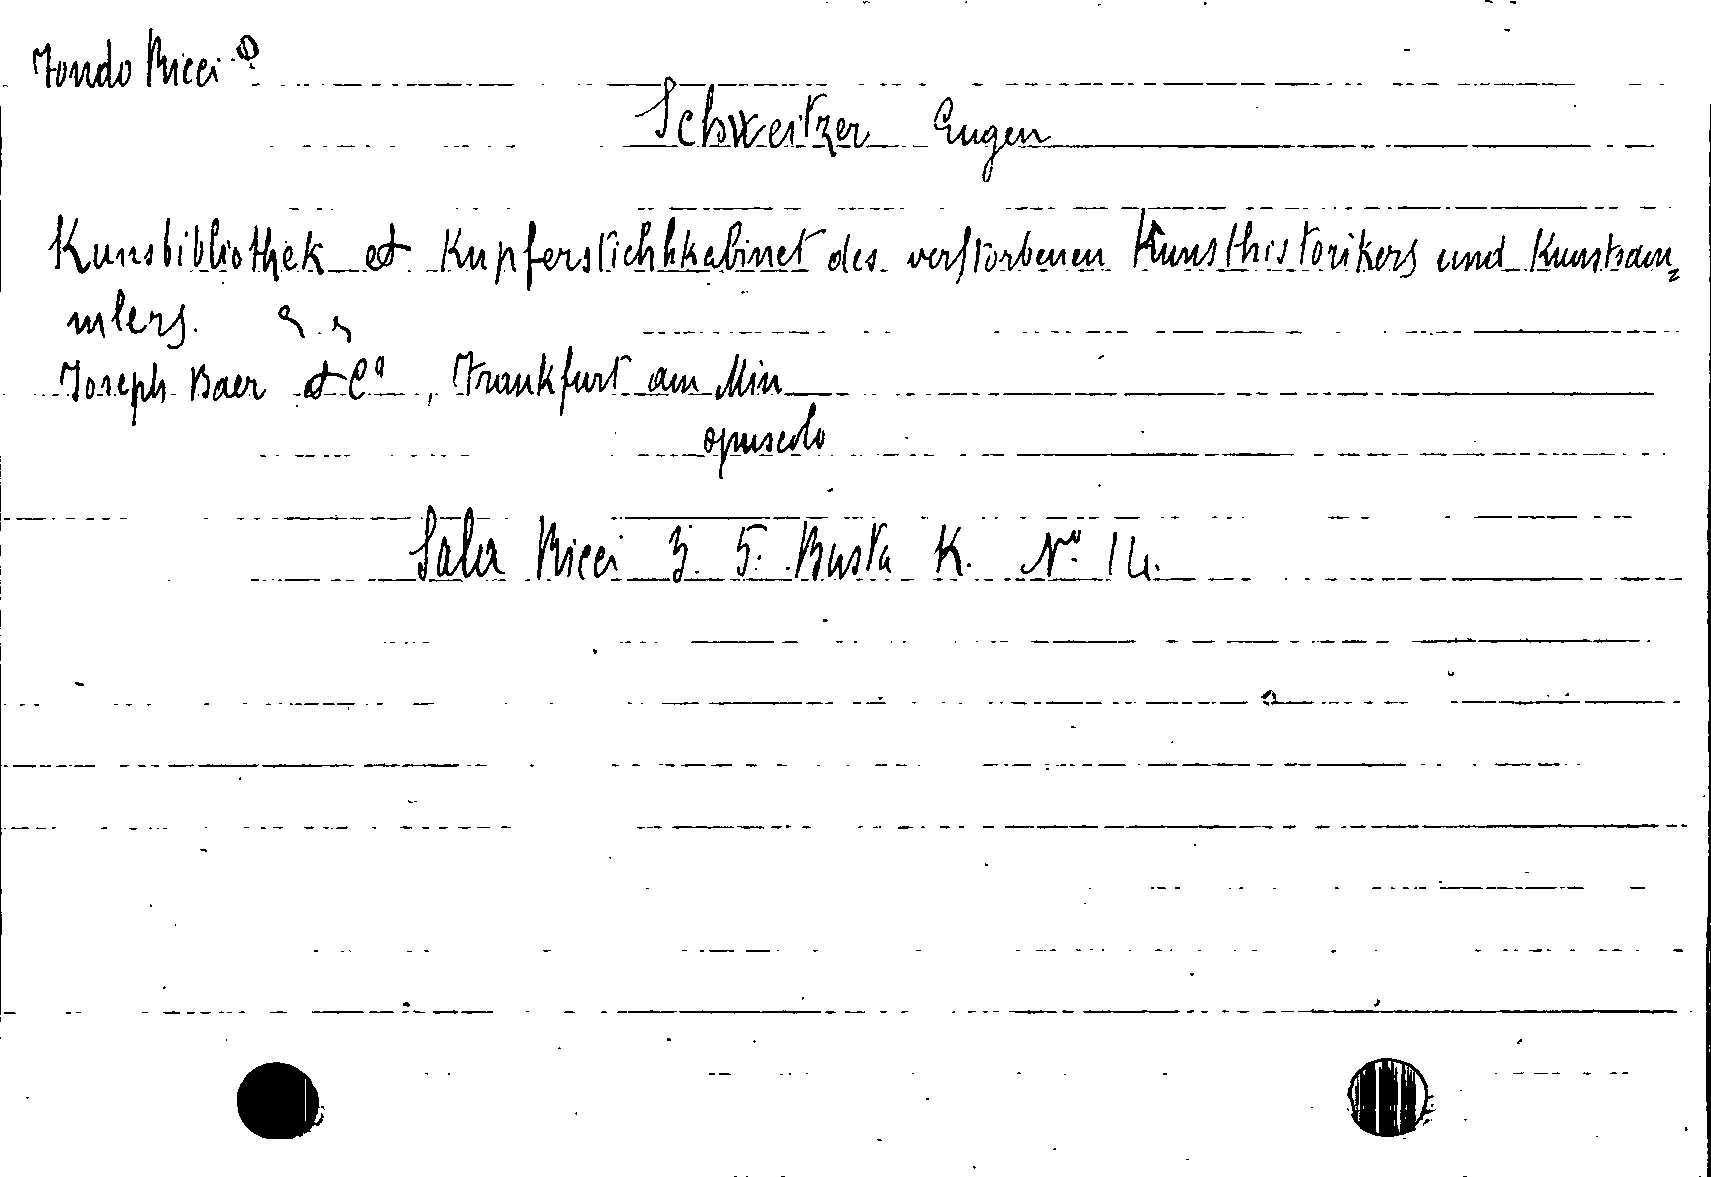 Fondo Ricci
Schweitzer Eugen
Kunsbibliothek et Kupferstichhkabinet des verstorbenen Kunsthistorikers und Kunstsam=
mlers.
Joseph Baer et Cº, Frankfurt am Min
opuscolo
Sala Ricci 3. 5. Busta K. Nº 14.